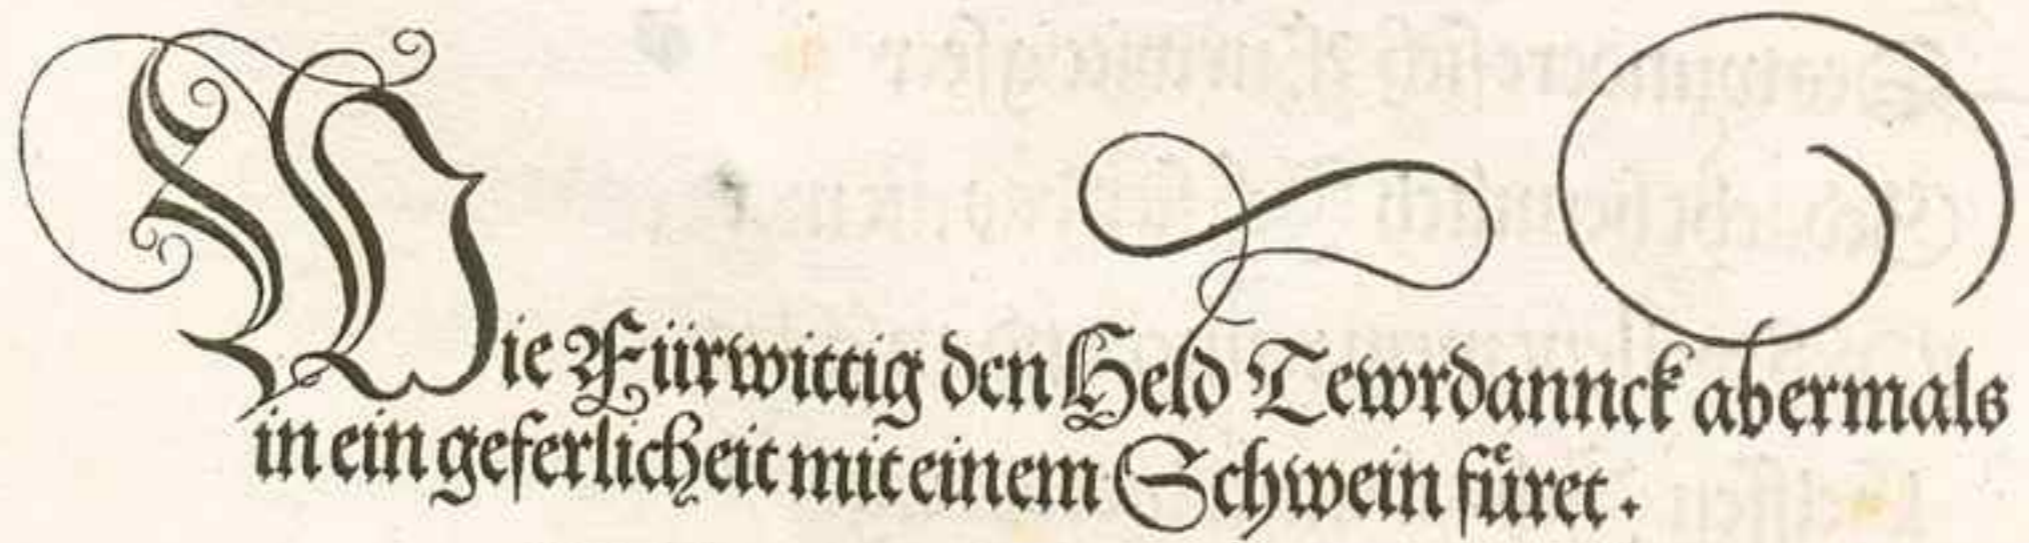 Wie Fürwittig den Held Tewrdannck abermals
in ein geferlicheit mit einem Schwein fůret.